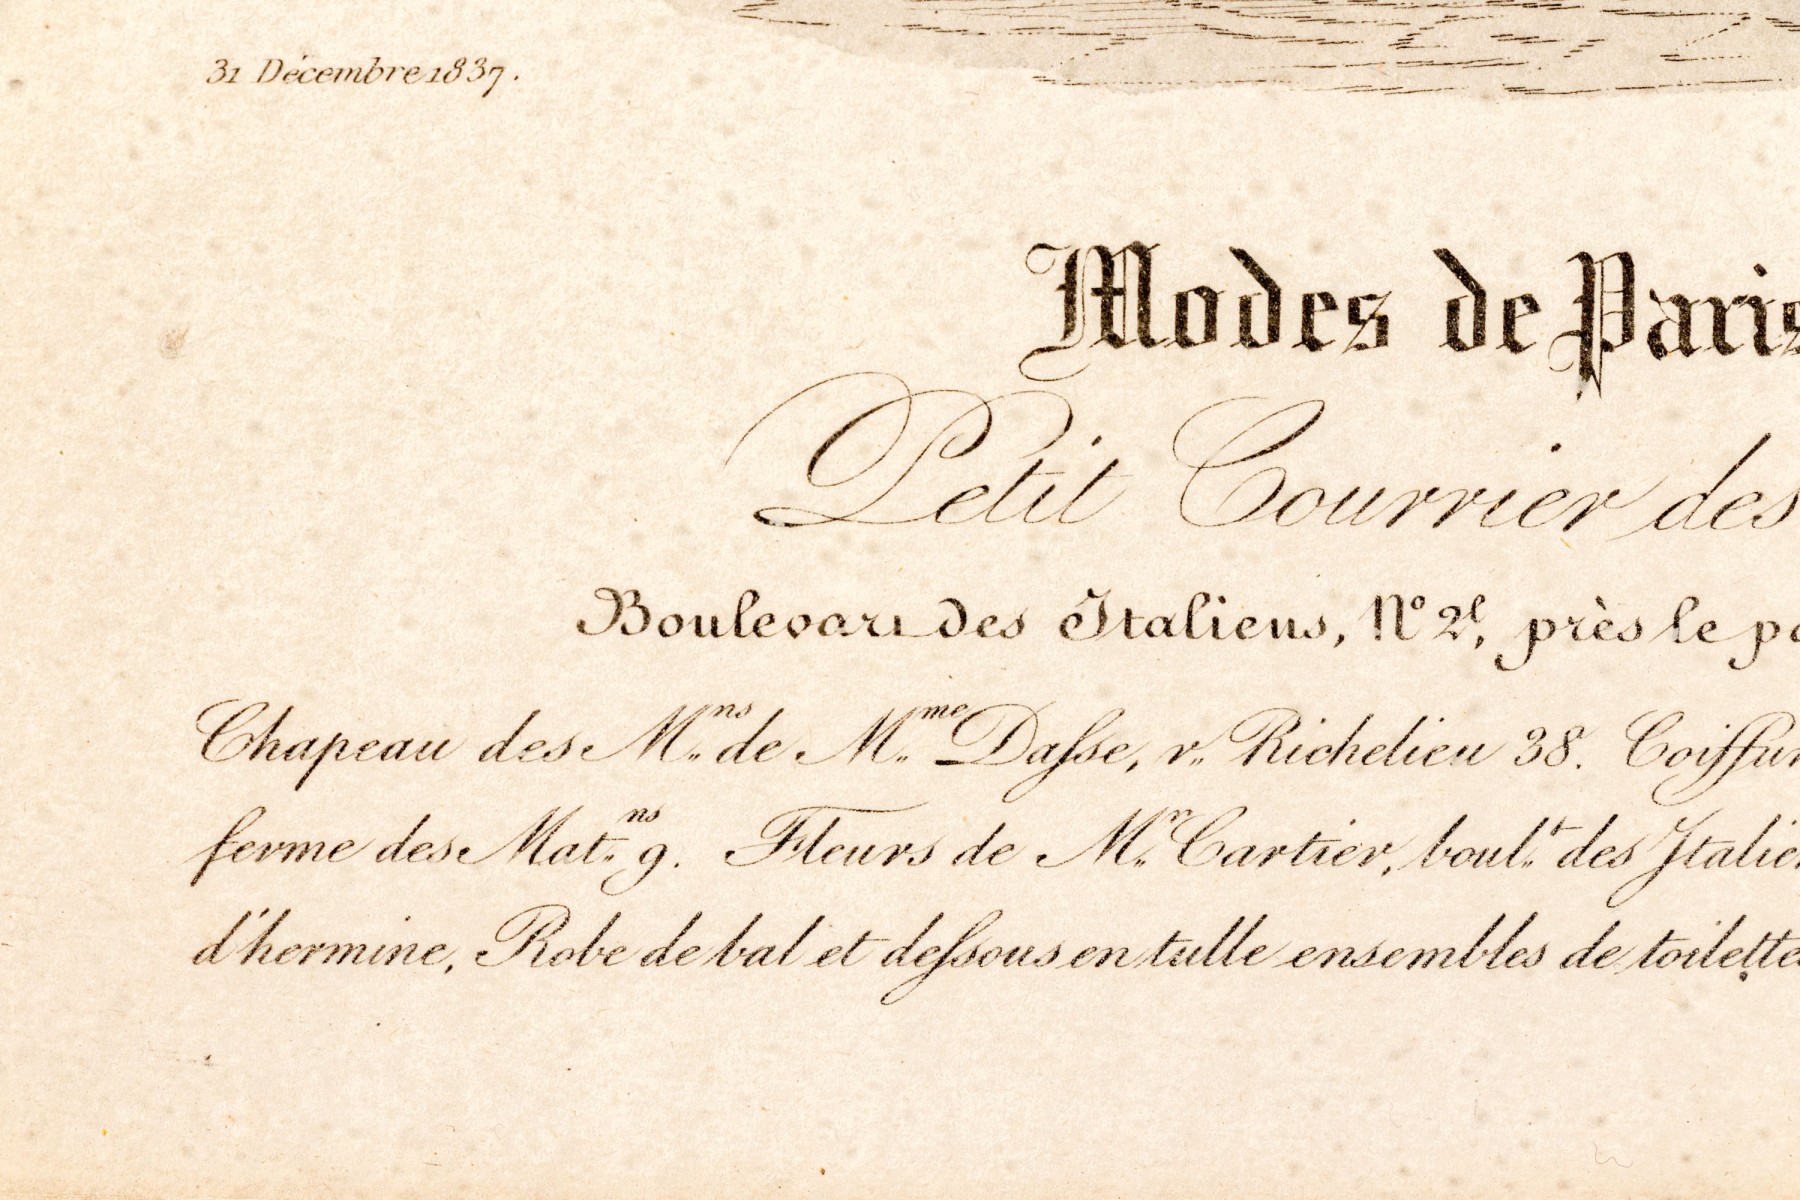 31 Décembre 1837.
Modes de Paris
Petit Courrier des
Boulevart des Italiens, N° 2, près le pa
Chapeau des M.ns de M.me Dasse, r. Richelieu 38. Coiffur
ferme des Mat.ns 9. Fleurs de M.r Cartier, boul.t des Italien
d'hermine, Robe de bal et dessous en tulle ensembles de toilette